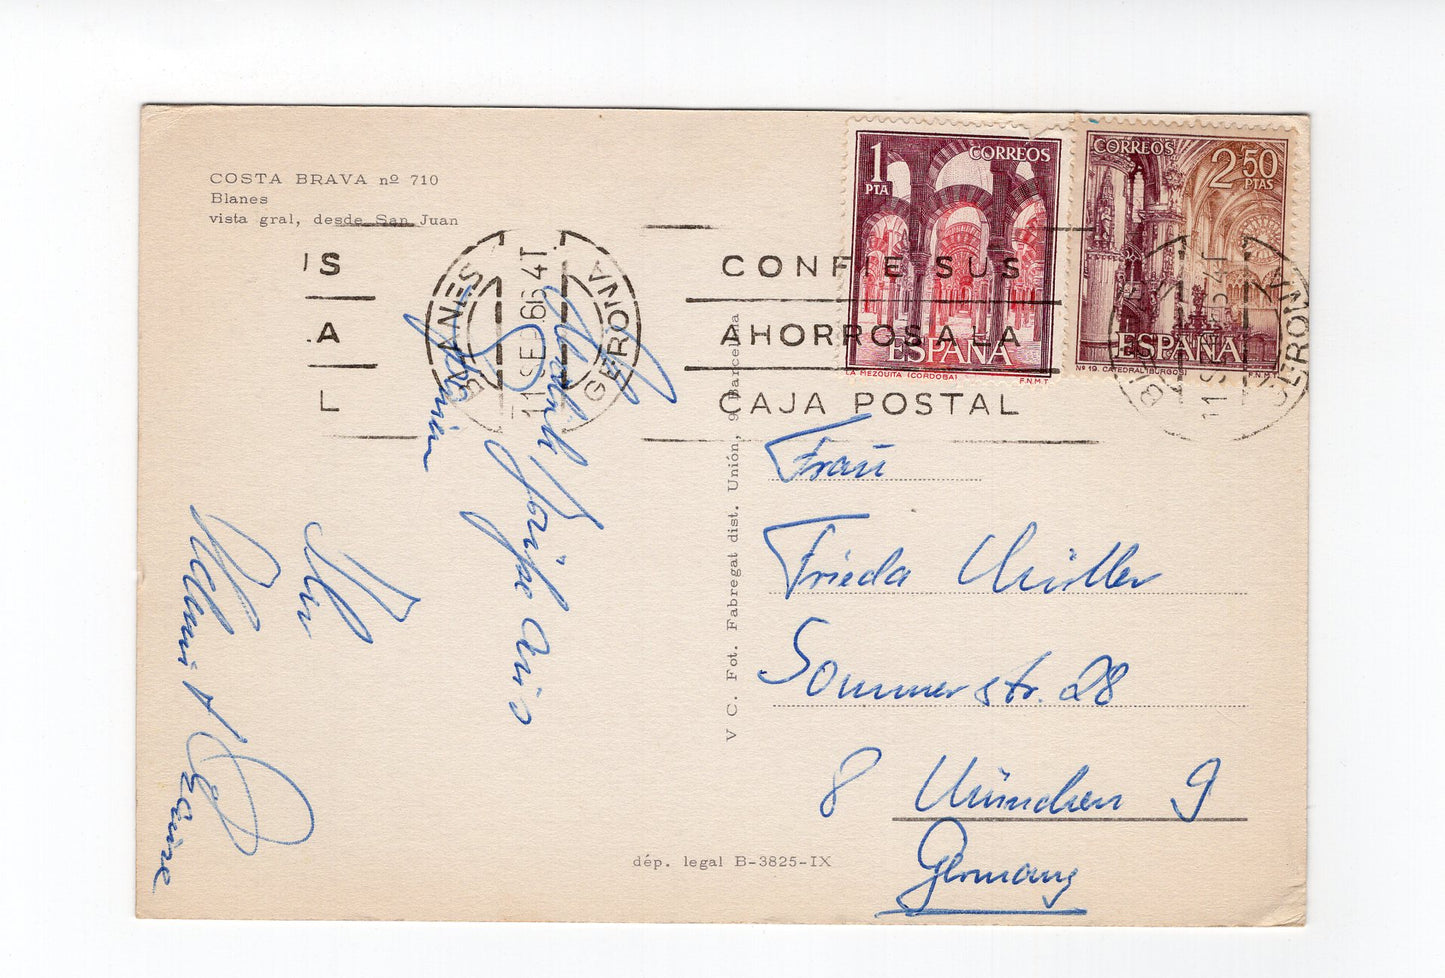 COSTA BRAVA nº 710
Blanes
vista gral, desde San Juan
1 PTA
CORREOS
ESPAÑA
LA MEZQUITA (CORDOBA)
F.N.M.T
CORREOS
2'50 PTAS
ESPAÑA
Nº 19. CATEDRAL (BURGOS)
F.N.M.T
IS
A
L
BLANES
11 SEP. 66 4T
GERONA
CONFIE SUS
AHORROS A LA
CAJA POSTAL
GERONA
V C. Fot. Fabregat dist. Unión, 9 Barcelona
Grüße aus
Ihr
Frau
Frieda Müller
Sommerstr. 28
8 München 9
Germany
dép. legal B-3825-IX